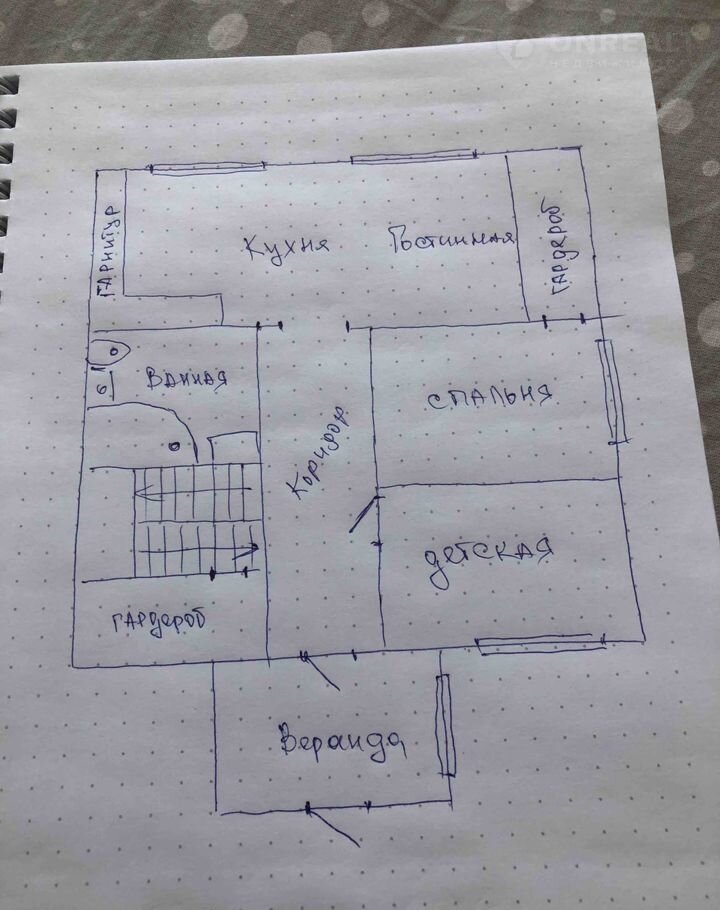 UNREAL
НЕДВИЖИМОС
Гарнитур
Кухня
Гостинная
Гардероб
Ванная
Спальня
Коридор
детская
гардероб
Веранда